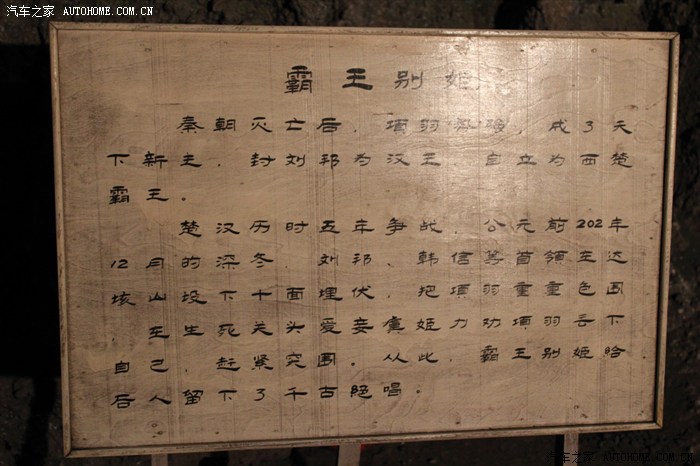 汽车之家 AUTOHOME.COM.CN
霸王别姬
秦朝灭亡后．項羽，成了天
下新主．封刘邦为汉王 自立为西楚
霸王．
楚汉历时五年争战．公元前202年
12月的深冬．刘邦、韩信等首領在达
垓山垓下十面埋伏．把項羽重重包围
在生死关头爱妾虞姬力劝項羽丢下
自己．赶紧突围．从此．霸王别姬给
后人留下了千古絕唱．
汽车之家 AUTOHOME.COM.CN